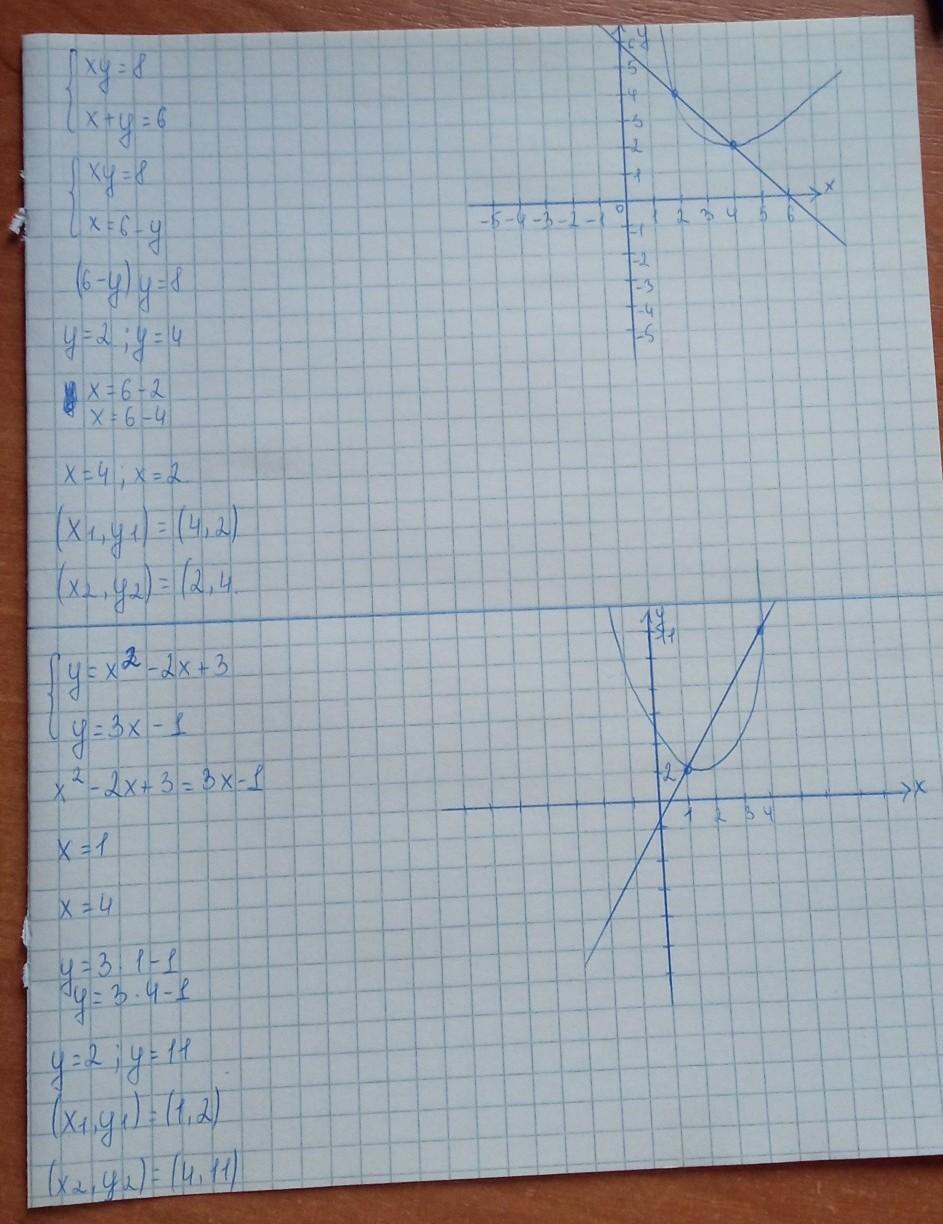 xy=8
x+y=6
xy=8
x=6-y
(6-y)y=8
y=2;y=4
x=6-2
x=6-4
x=4;x=2
(x1,y1)=(4,2)
(x2,y2)=(2,4
y
6
5
4
3
2
1
-5 -4 -3 -2 -1 0 1 2 3 4 5 6 x
-1
-2
-3
-4
-5
y=x²-2x+3
y=3x-1
x²-2x+3=3x-1
x=1
x=4
y=3·1-1
y=3·4-1
y=2;y=11
(x1,y1)=(1,2)
(x2,y2)=(4,11)
y
11
2
1 2 3 4 x